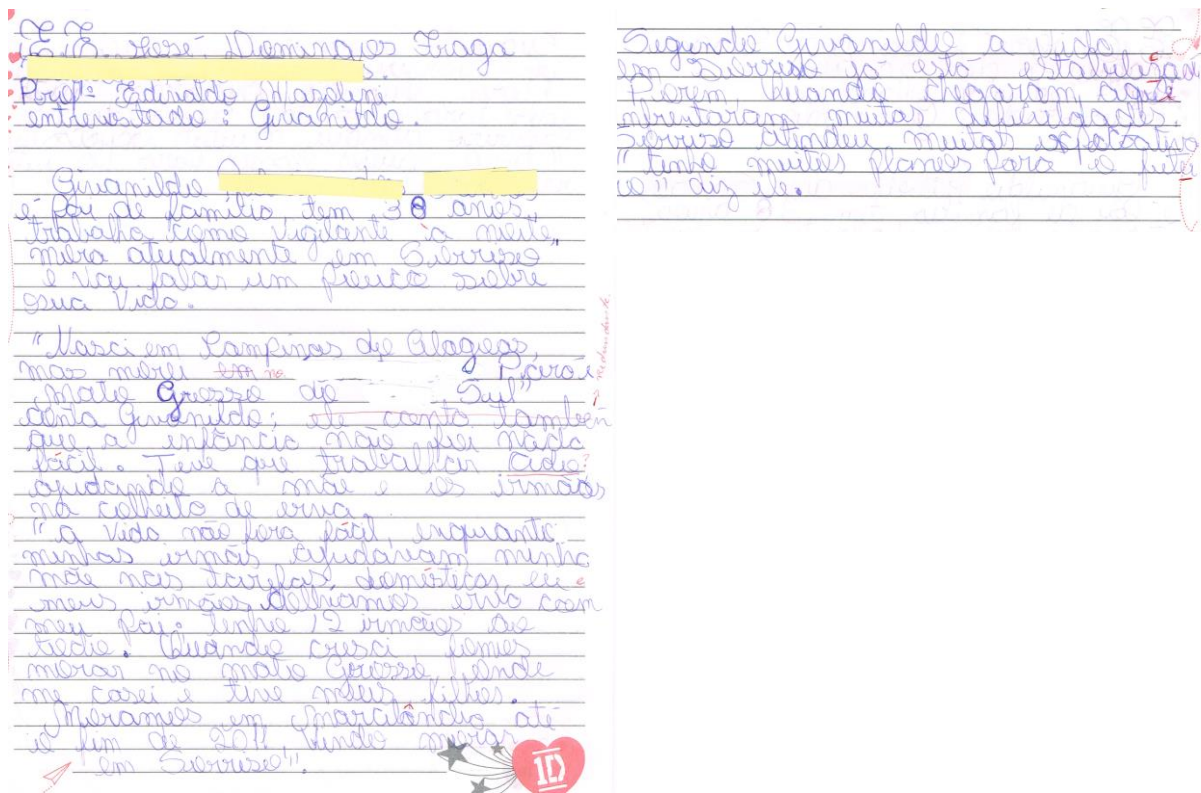 E.E. José Domingos Fraga
Profº: Edivaldo Mazolini
entrevistado: Givanildo.
Givanildo
é pai de família, tem 38 anos,
trabalha como vigilante à noite,
mora atualmente em Sorriso
e vai falar um pouco sobre
sua vida.
"Nasci em Campinas de Alagoas,
mas morei em no
Mato Grosso do Sul"
conta Givanildo; ele conta também
que a infância não foi nada
fácil. Teve que trabalhar cedo?
ajudando a mãe e os irmãos
na colheita de erva.
"a vida não fora fácil, enquanto
minhas irmãs ajudavam minha
mãe nas tarefas domésticas, eu e
meus irmãos colhíamos erva com
meu pai. tenho 12 irmãos ao
todo. Quando cresci, fomos
morar no mato Grosso, onde
me casei e tive meus filhos.
Moramos em Marcilândia até
o fim de 2011, vindo morar
em Sorriso".
1D
Segundo Givanildo a vida
em Sorriso já está
Porem, quando chegaram aqui
enfrentaram muitas dificuldades.
Sorriso atendeu muitas
"tenho muitos planos para o futu
ro" diz ele.